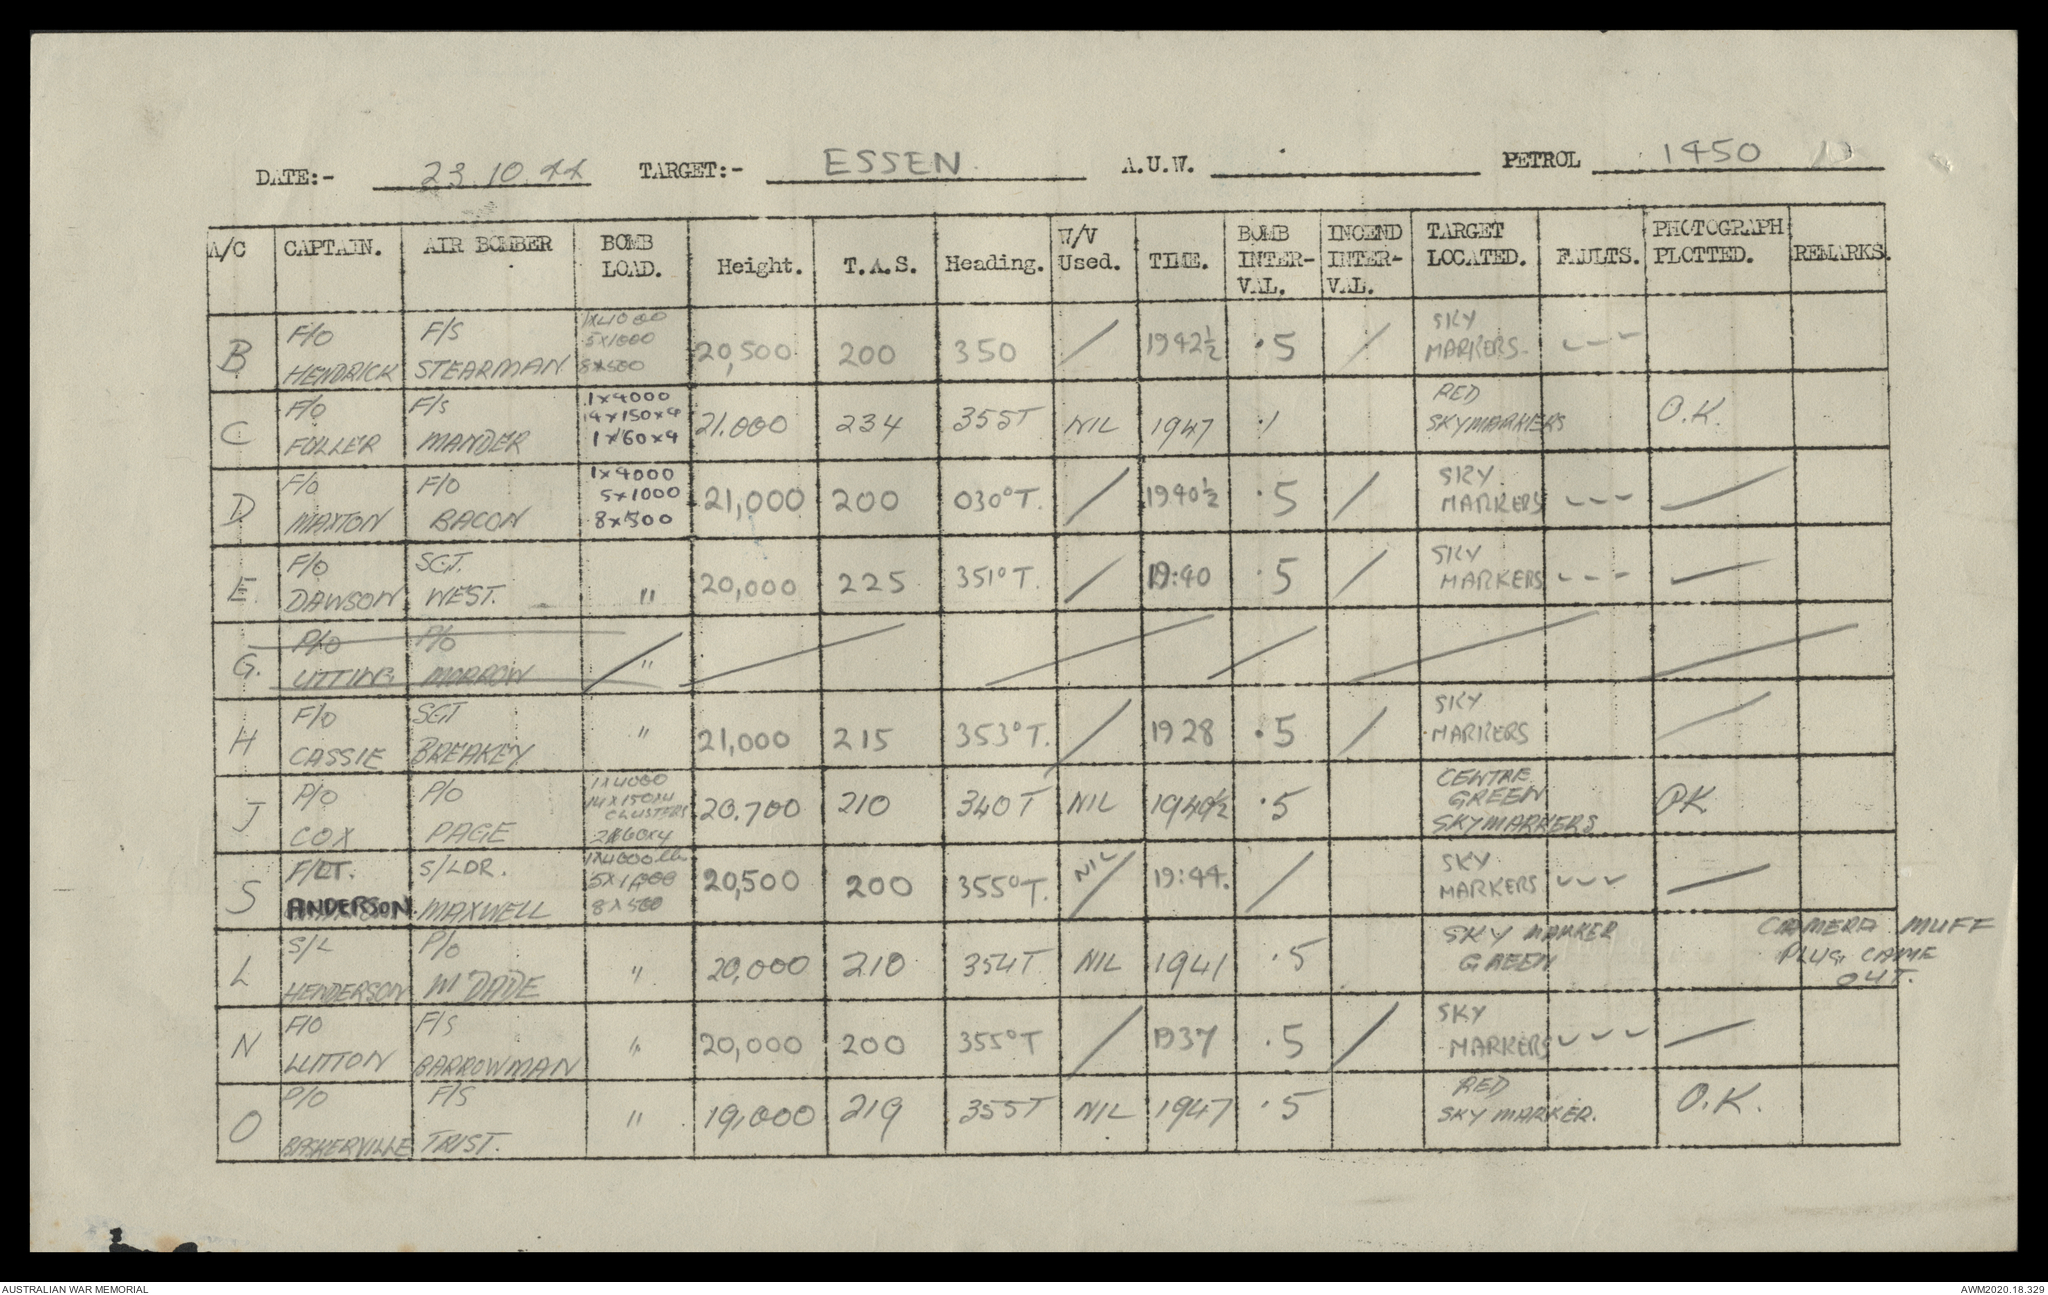 DATE:- 23.10.44 TARGET:- ESSEN A.U.W. PETROL 1450
A/C CAPTAIN. AIR BOMBER BOMB LOAD. Height. T.A.S. Heading. W/V Used. TIME. BOMB INTER-VAL. INCEND INTER-VAL. TARGET LOCATED. FAULTS. PHOTOGRAPH PLOTTED. REMARKS.
B F/O HENDRICK F/S STEARMAN 1x4000 5x1000 8x500 20,500 200 350 / 1942½ .5 / SKY MARKERS - - -
C F/O FULLER F/S MANDER 1x4000 14x150x4 1x60x4 21.000 234 355T NIL 1947 .1 RED SKYMARKERS O.K.
D F/O MAXTON F/O BACON 1x4000 5x1000 8x500 21,000 200 030°T. / 1940½ .5 / SKY MARKERS - - - /
E. F/O DAWSON SGT. WEST. " 20,000 225 351°T. / 19:40 .5 / SKY MARKERS - - - /
G. P/O UTTING P/O MORROW "
H F/O CASSIE SGT BREAKEY " 21,000 215 353°T. / 1928 .5 / SKY MARKERS /
J P/O COX P/O PAGE 1x4000 14x150x4 CLUSTERS 2x60x4 20.700 210 340T NIL 1940½ .5 CENTRE GREEN SKYMARKERS OK
S F/LT. ANDERSON S/LDR. MAXWELL 1x4000lb 5x1,000 8x500 20,500 200 355°T. NIL / 19:44. / SKY MARKERS - - - /
L S/L HENDERSON P/O McDADE " 20,000 210 354T NIL 1941 .5 SKY MARKER GREEN CAMERA MUFF PLUG CAME OUT.
N F/O LUTTON F/S BARROWMAN " 20,000 200 355°T / 1937 .5 / SKY MARKERS - - - /
O P/O BASKERVILLE F/S TRIST. " 19,000 219 355T NIL 1947 .5 RED SKY MARKER. O.K.
AUSTRALIAN WAR MEMORIAL AWM2020.18.329